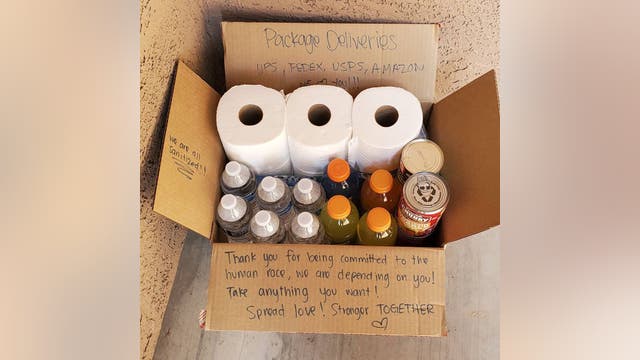 Package Deliveries
UPS, FEDEX, USPS, AMAZON
We are all
Sanitized!!
CHUNKY
Thank you for being committed to the
human race, we are depending on you!
Take anything you want!
Spread love! Stronger TOGETHER